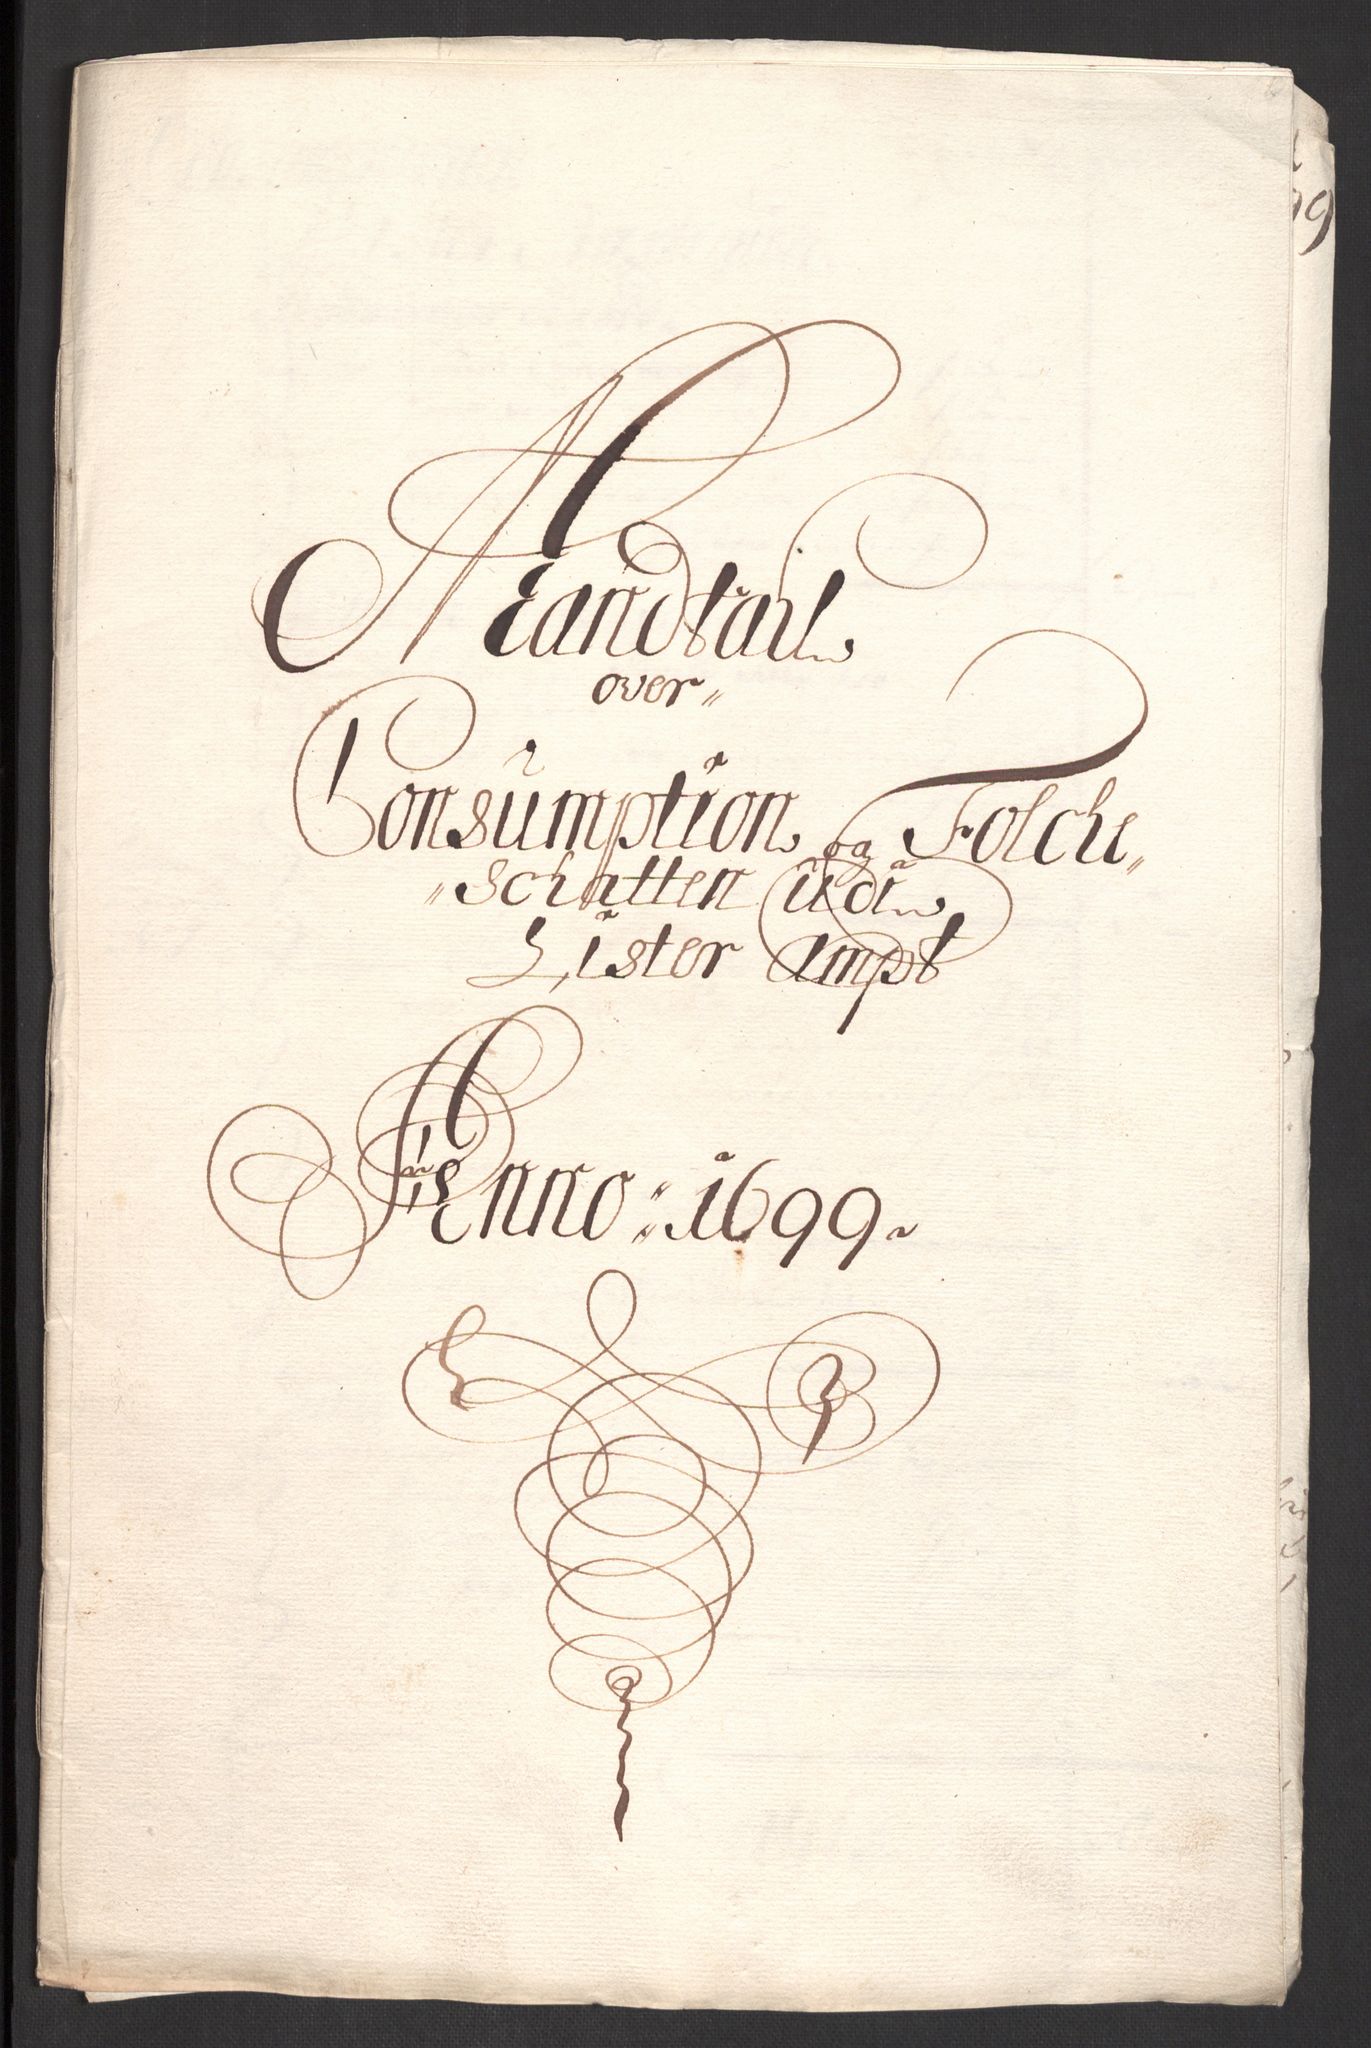 Mandtall
over
Consumption og Folche
schatten udi
Lister Ampt
Anno: 1699
99